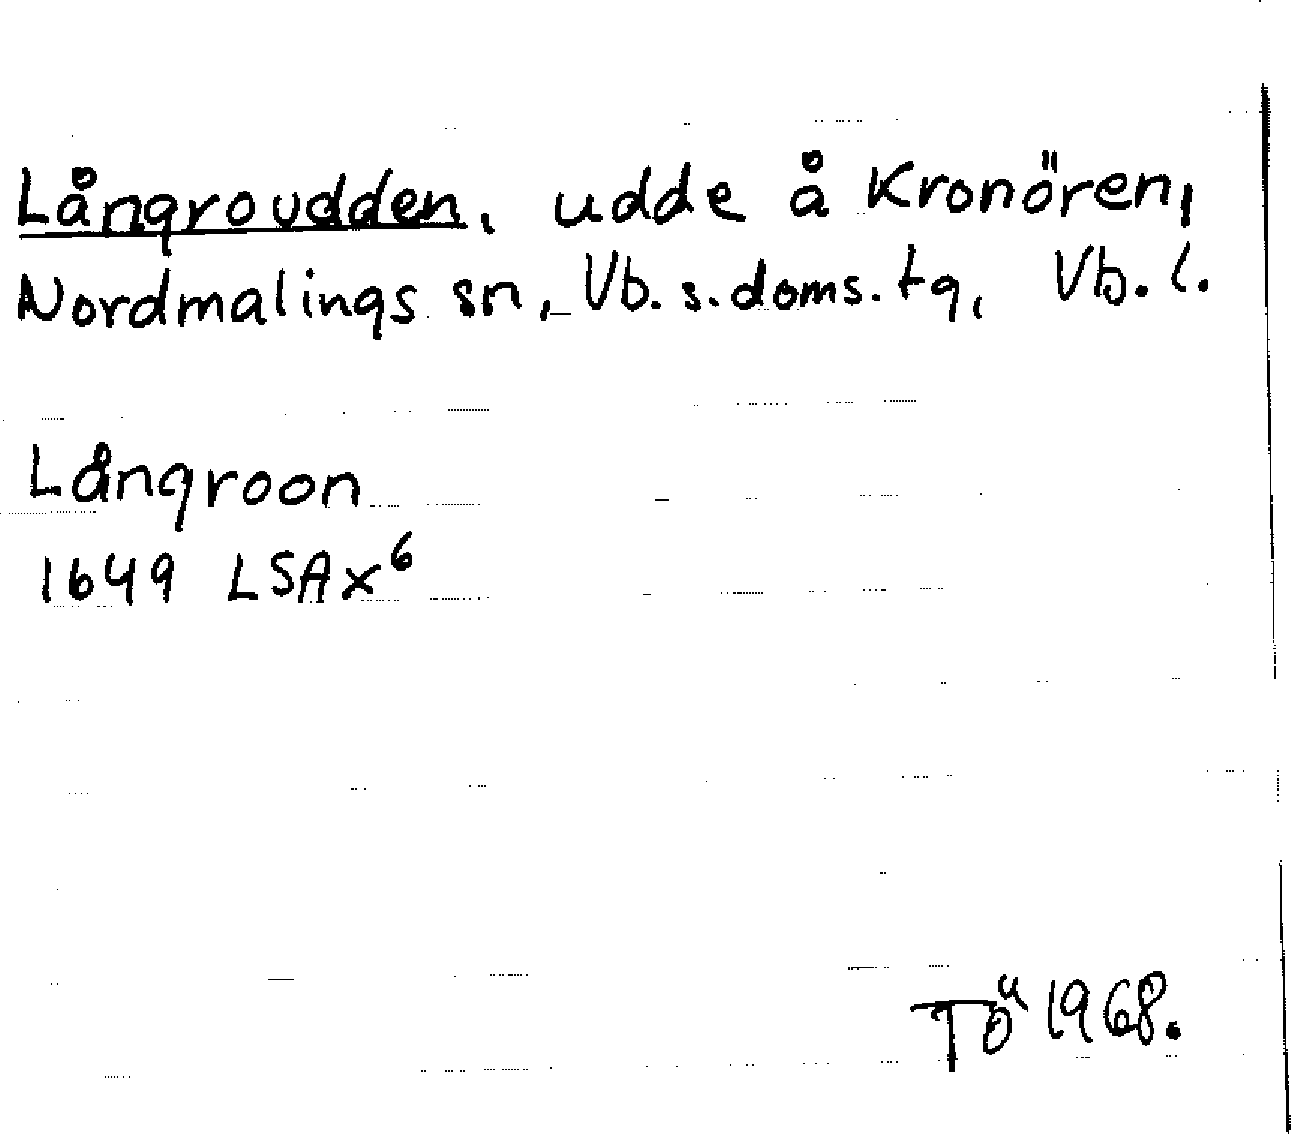 Långroudden, udde å Kronören,
Nordmalings sn, Vb. s. doms. tg, Vb. l.
Långroon
1649 LSA X⁶
Tö 1968.